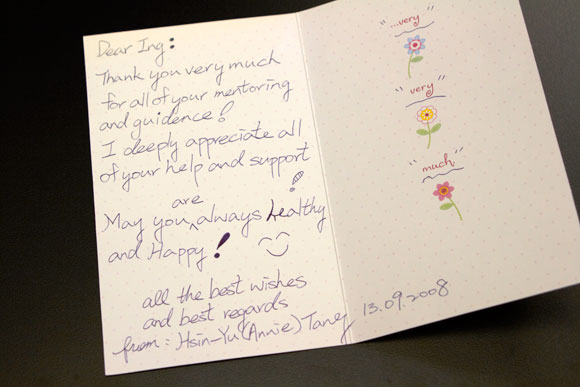 Dear Ing:
Thank you very much
for all of your mentoring
and guidence!
I deeply appreciate all
of your help and support!
are
May you ^ always healthy
and Happy!
all the best wishes
and best regards
from: Hsin-Yu (Annie) Tang 13.09.2008
"...very"
"very"
"much."